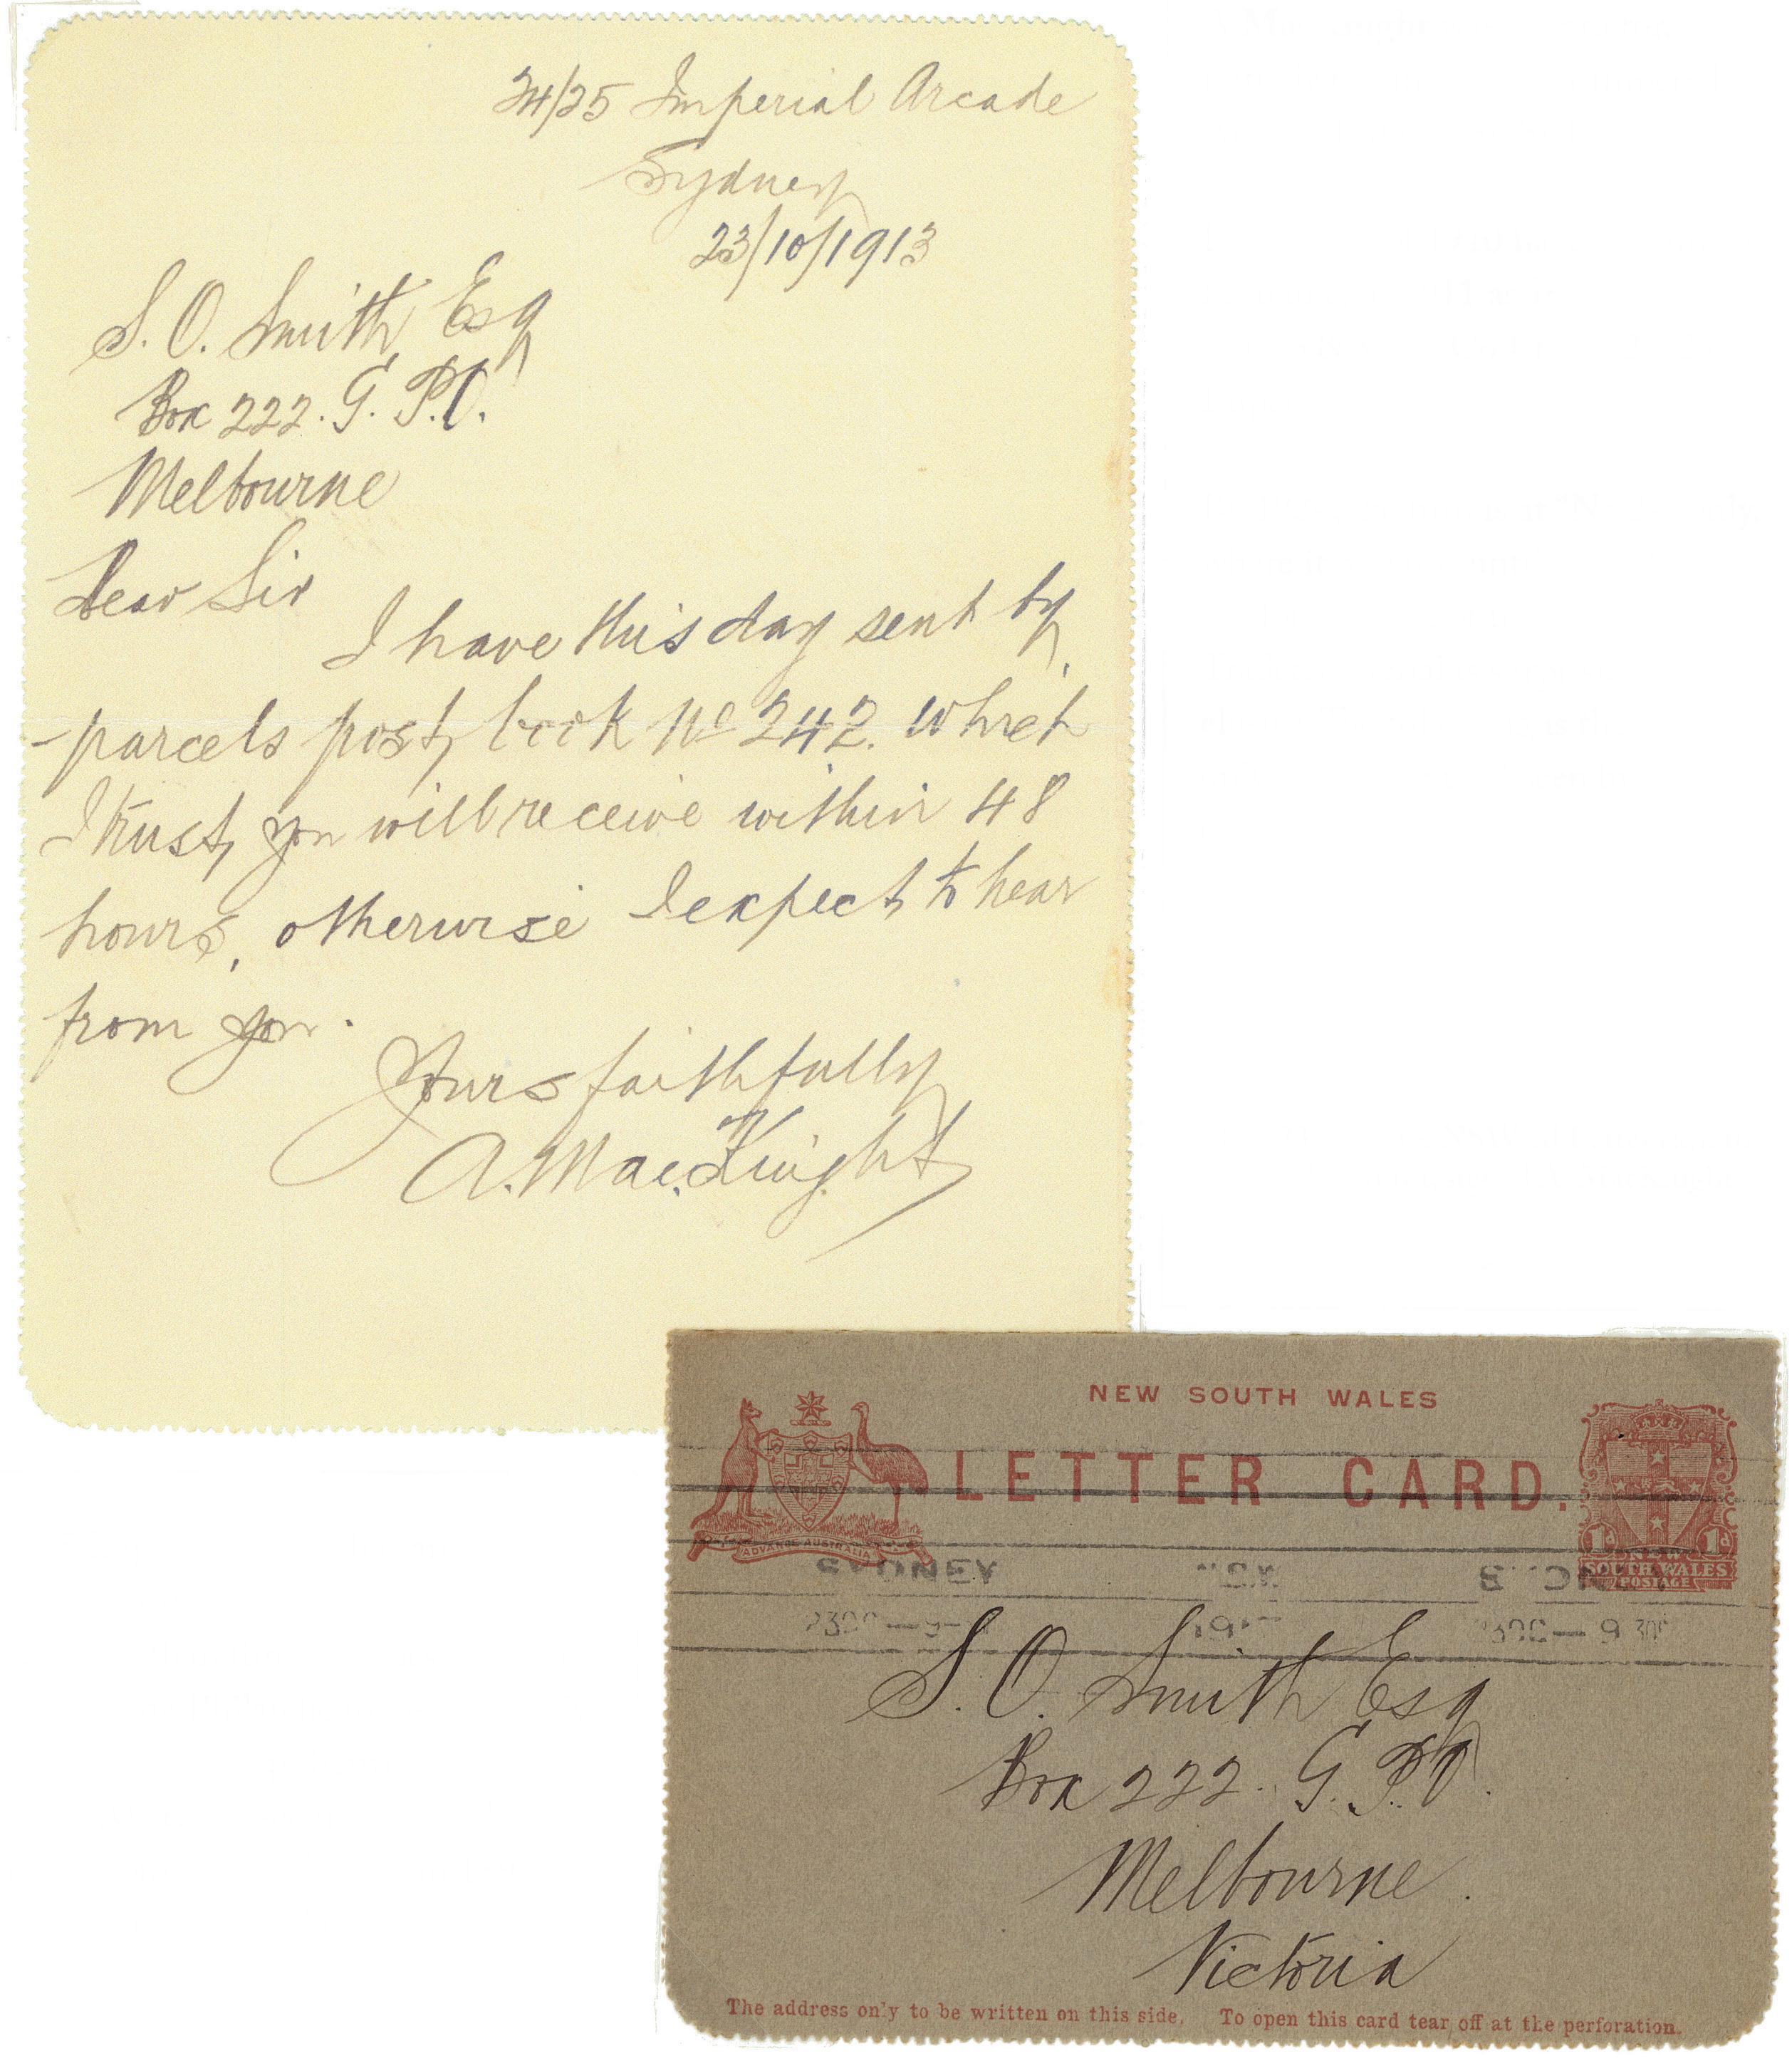 24/25 Imperial Arcade
Sydney
23/10/1913
S. O. Smith Esq
Box 222. G. P.O.
Melbourne
Dear Sir
I have this day sent by
parcels post, book No 242. which
I trust, you will receive within 48
hours, otherwise I expect to hear
from you.
Yours faithfully
A. MacKnight
NEW SOUTH WALES
LETTER CARD.
ADVANCE AUSTRALIA
1d 1d
NEW
SOUTH WALES
POSTAGE
SYDNEY
S. O. Smith Esq
Box 222. G. P.O.
Melbourne.
Victoria
The address only to be written on this side. To open this card tear off at the perforation.